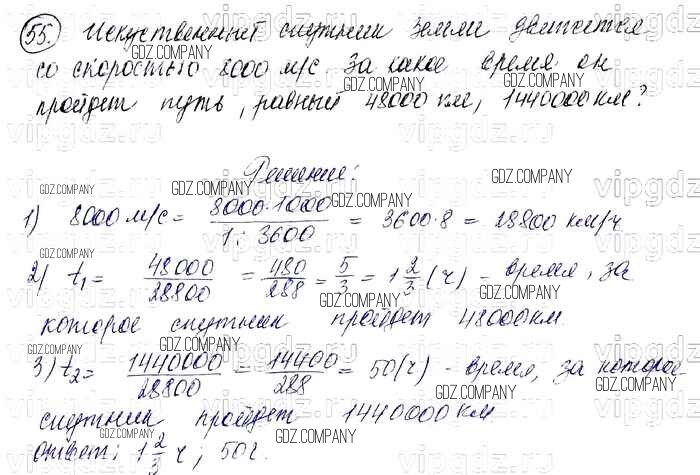 55. Искуственный спутник земли движется
со скоростью 8000 м/с. За какое время он
пройдет путь, равный 48000 км, 1440000 км?
Решение:
1) 8000 м/с = 8000·1000 / 1:3600 = 3600·8 = 28800 км/ч
2) t₁ = 48000/28800 = 480/288 = 5/3 = 1 2/3 (ч) - время, за
которое спутник пройдет 48000 км.
3) t₂ = 1440000/28800 = 14400/288 = 50 (ч) - время, за которое
спутник пройдет 1440000 км
ответ: 1 2/3 ч; 50 ч.
GDZ.COMPANY
vipgdz.ru